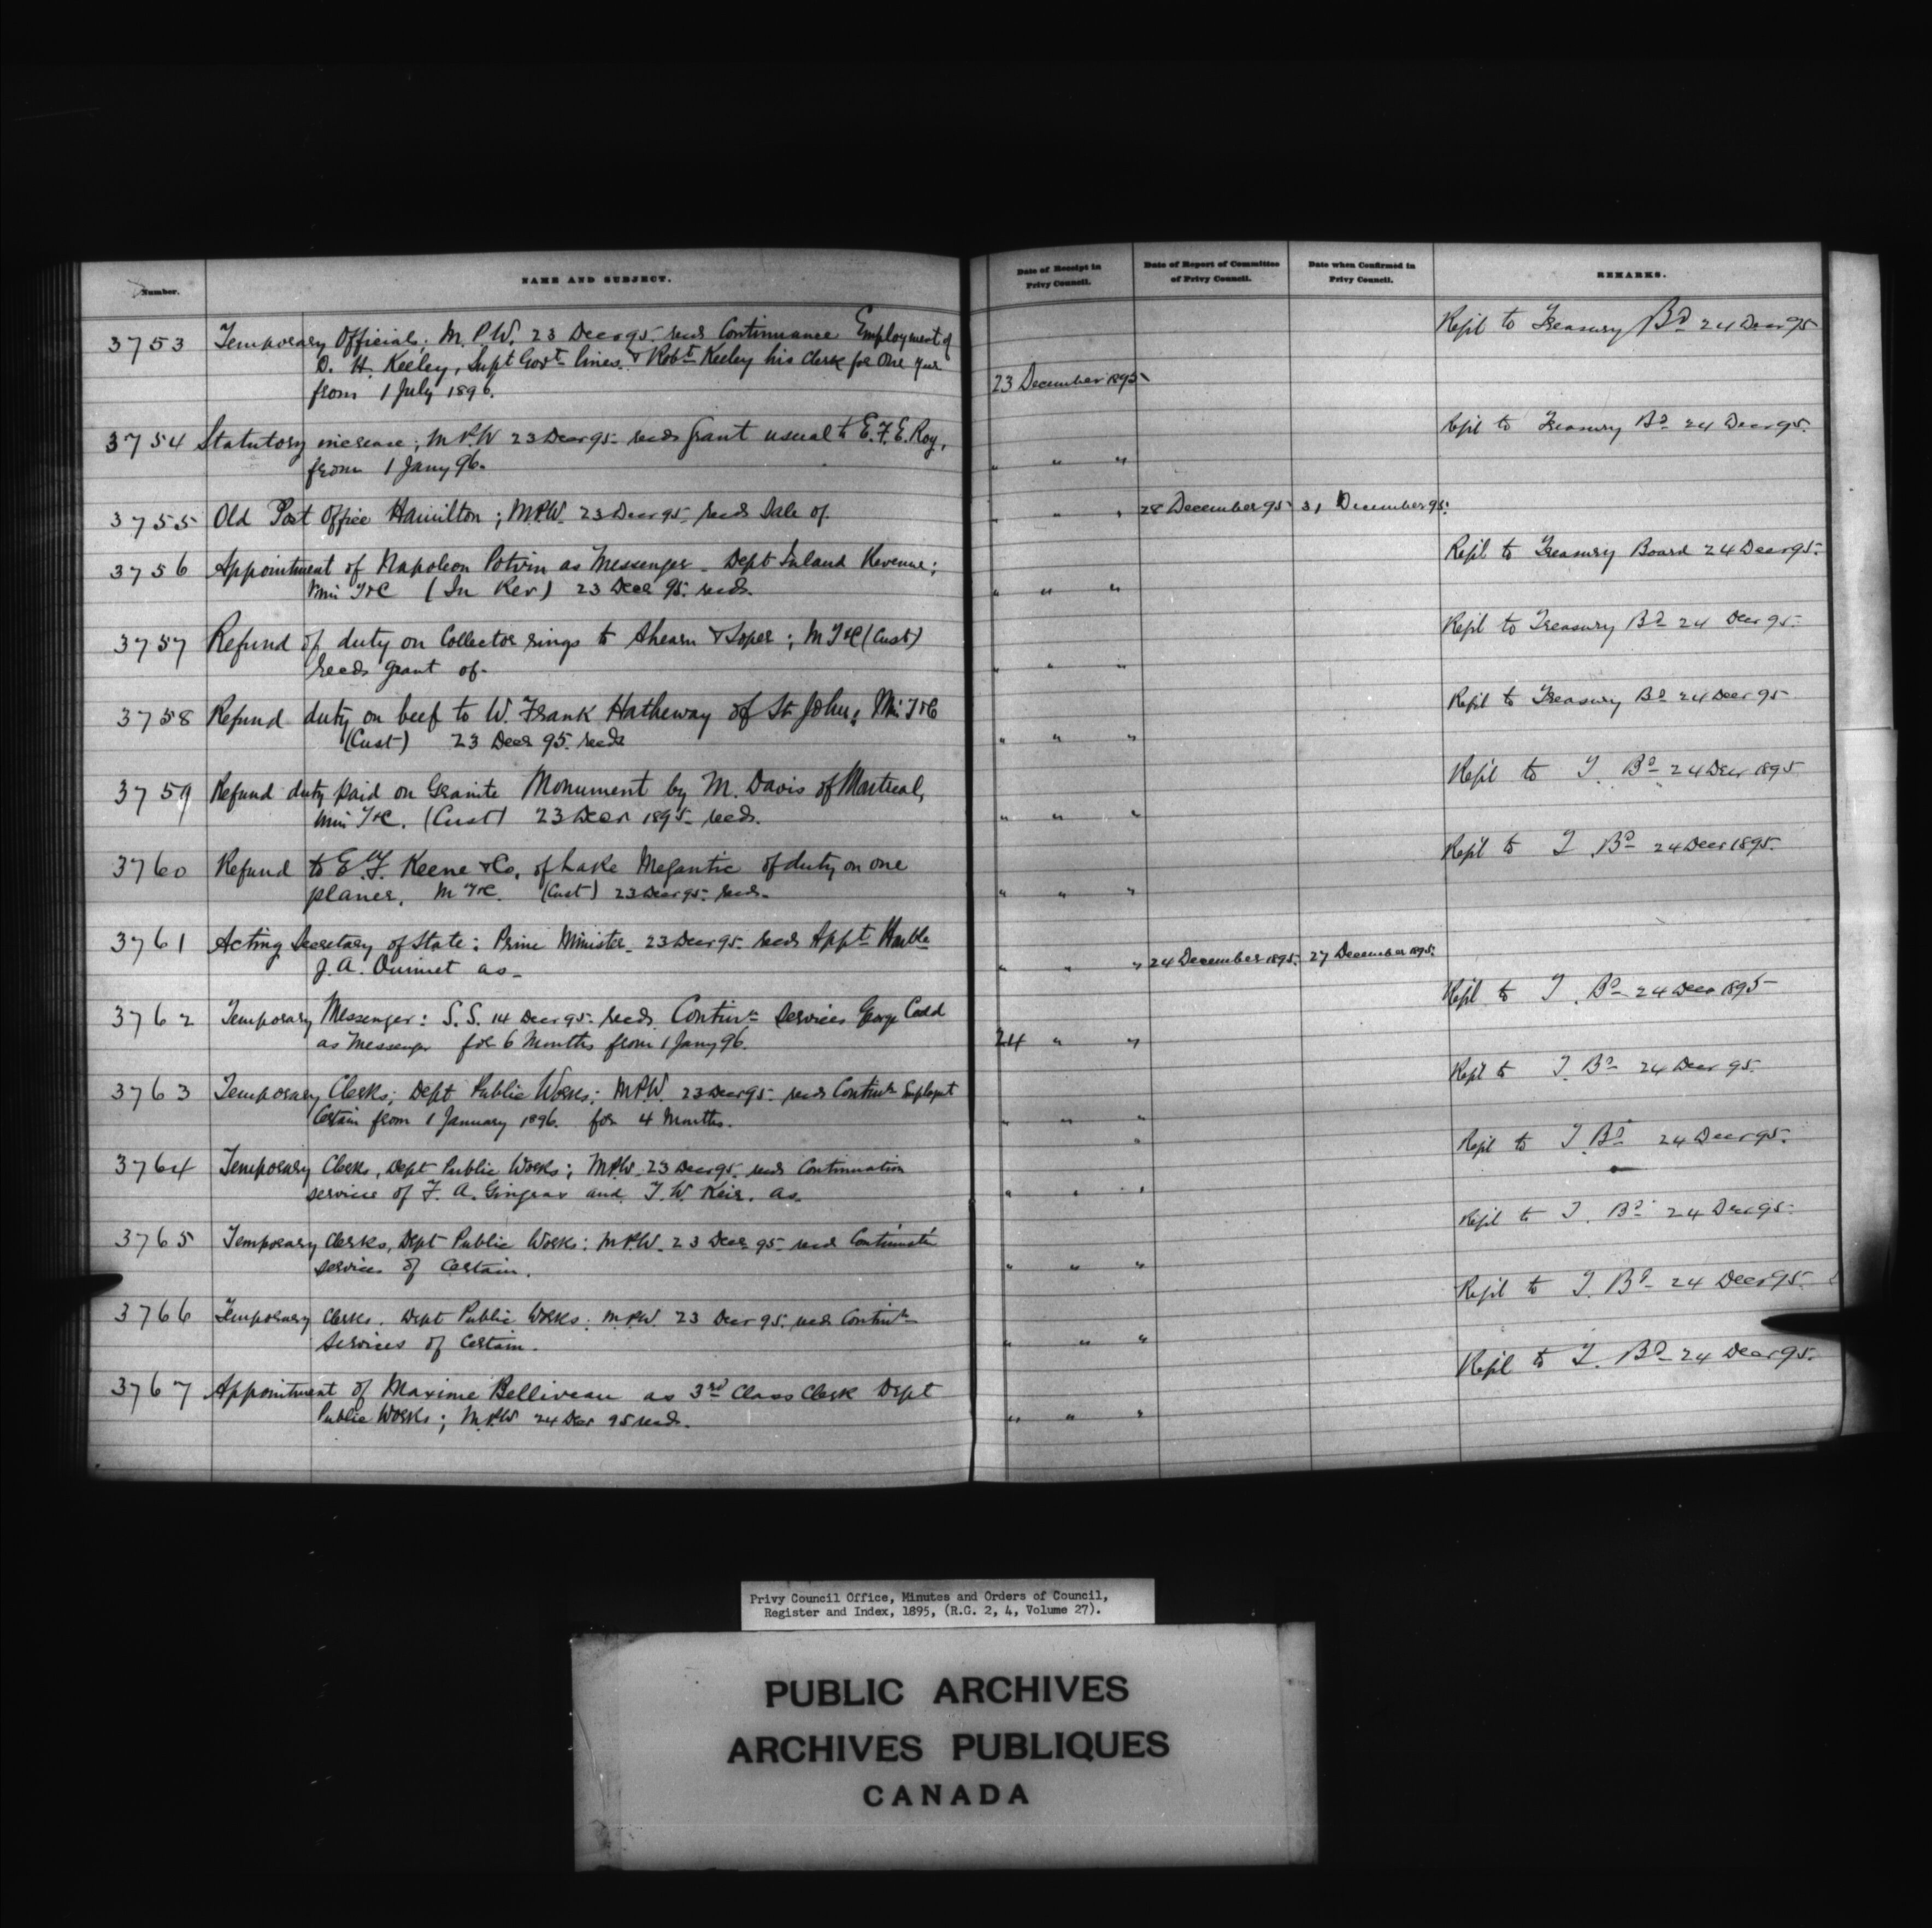 Number.
NAME AND SUBJECT.
Date of Receipt in
Privy Council.
Date of Report of Committee
of Privy Council.
Date when Confirmed in
Privy Council.
REMARKS.
3753 Temporary Officials: M.P.W. 23 Decr 95 recds Continuance Employment of
D. H. Keeley, Supt Govt lines & Robt Keeley his Clerk for One year
from 1 July 1896.
23 December 1895
Refd to Treasury Bd 24 Decr 95
3754 Statutory increase; M.P.W 23 Decr 95 recds Grant usual to E.F.E. Roy,
from 1 Jany 96.
" " "
Refd to Treasury Bd 24 Decr 95.
3755 Old Post Office Hamilton; M.P.W. 23 Decr 95. recds Sale of
" " " 28 December 95 31 December 95.
3756 Appointment of Napoleon Potvin as Messenger - Dept Inland Revenue;
Min T&C (In Rev) 23 Decr 95. recds.
" " "
Refd to Treasury Board 24 Decr 95.
3757 Refund of duty on Collector rings to Ahearn & Soper; M T&C (Cust)
recds grant of.
" " "
Refd to Treasury Bd 24 Decr 95.
3758 Refund duty on beef to W. Frank Hatheway of St John; Min T&C
(Cust) 23 Decr 95. recds
" " "
Refd to Treasury Bd 24 Decr 95
3759 Refund duty paid on Granite Monument by M. Davis of Montreal,
Min T&C. (Cust) 23 Decr 1895. recds.
" " "
Refd to T. Bd 24 Decr 1895
3760 Refund to E.F. Keene & Co. of Lake Megantic of duty on one
planer. M T&C. (Cust) 23 Decr 95. recds.
" " "
Refd to T Bd 24 Decr 1895.
3761 Acting Secretary of State: Prime Minister. 23 Decr 95 recds Appt Honble
J. A. Ouimet as-
" " " 24 December 1895. 27 December 1895.
3762 Temporary Messenger: S.S. 14 Decr 95. recds. Continn Services George Codd
as Messenger for 6 Months from 1 Jany 96.
24 " "
Refd to T. Bd 24 Decr 1895
3763 Temporary Clerks; Dept Public Works; M.P.W. 23 Decr 95. recds Continn Employmt
Certain from 1 January 1896. for 4 Months.
" " "
Refd to T. Bd 24 Decr 95.
3764 Temporary Clerks, Dept Public Works; M.P.W. 23 Decr 95. recds Continuation
service of F. A. Gingras and T. W. Keir. as.
" " "
Refd to T Bd 24 Decr 95.
3765 Temporary Clerks, Dept Public Works: M.P.W. 23 Decr 95. recds Continuatn
services of Certain.
" " "
Refd to T. Bd 24 Decr 95.
3766 Temporary Clerks. Dept Public Works. M.P.W. 23 Decr 95. recds Continn
Services of Certain.
" " "
Refd to T. Bd 24 Decr 95.
3767 Appointment of Maxime Belliveau as 3rd Class Clerk Dept
Public Works; M.P.W 24 Dec 95 recds.
" " "
Refd to T. Bd 24 Decr 95.
Privy Council Office, Minutes and Orders of Council,
Register and Index, 1895, (R.G. 2, 4, Volume 27).
PUBLIC ARCHIVES
ARCHIVES PUBLIQUES
CANADA